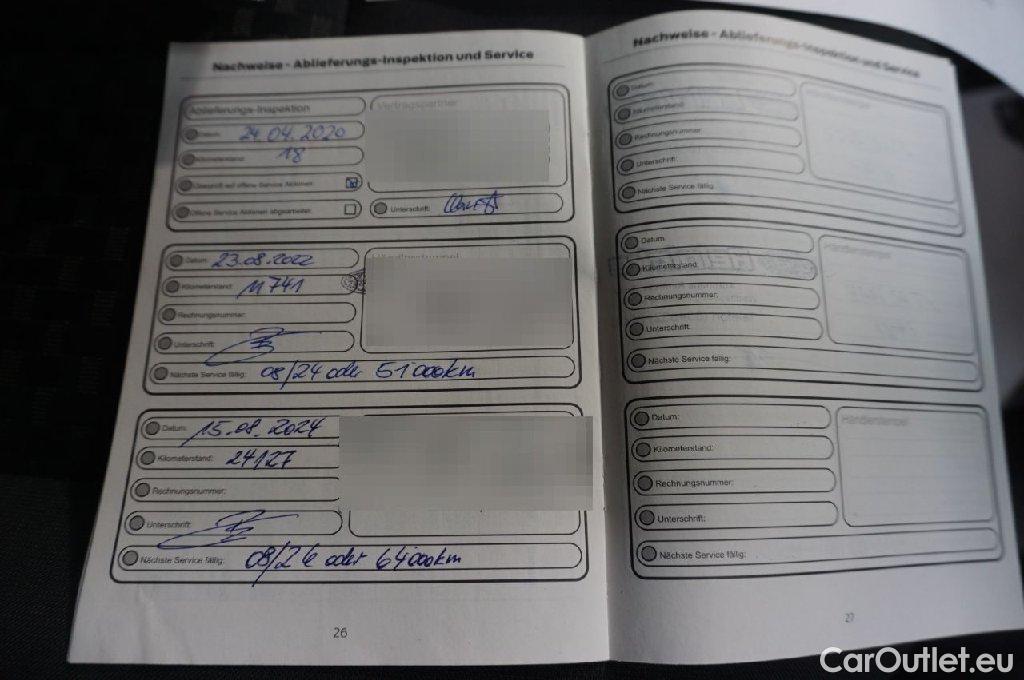 Nachweise - Ablieferungs-Inspektion und Service
Ablieferungs-Inspektion
Vertragspartner
Datum: 24.04.2020
Kilometerstand: 18
Überprüft auf offene Service Aktionen
Offene Service Aktionen abgearbeitet:
Unterschrift:
Datum: 23.08.2022
Händlerstempel
Kilometerstand: 11741
Rechnungsnummer:
Unterschrift:
Nächste Service fällig: 08/24 oder 51000km
Datum: 15.08.2024
Kilometerstand: 24127
Rechnungsnummer:
Unterschrift:
Nächste Service fällig: 08/26 oder 64000km
26
Nachweise - Ablieferungs-Inspektion und Service
Datum:
Kilometerstand:
Rechnungsnummer:
Unterschrift:
Nächste Service fällig:
Datum:
Händlerstempel
Kilometerstand:
Rechnungsnummer:
Unterschrift:
Nächste Service fällig:
Datum:
Händlerstempel
Kilometerstand:
Rechnungsnummer:
Unterschrift:
Nächste Service fällig:
27
CarOutlet.eu